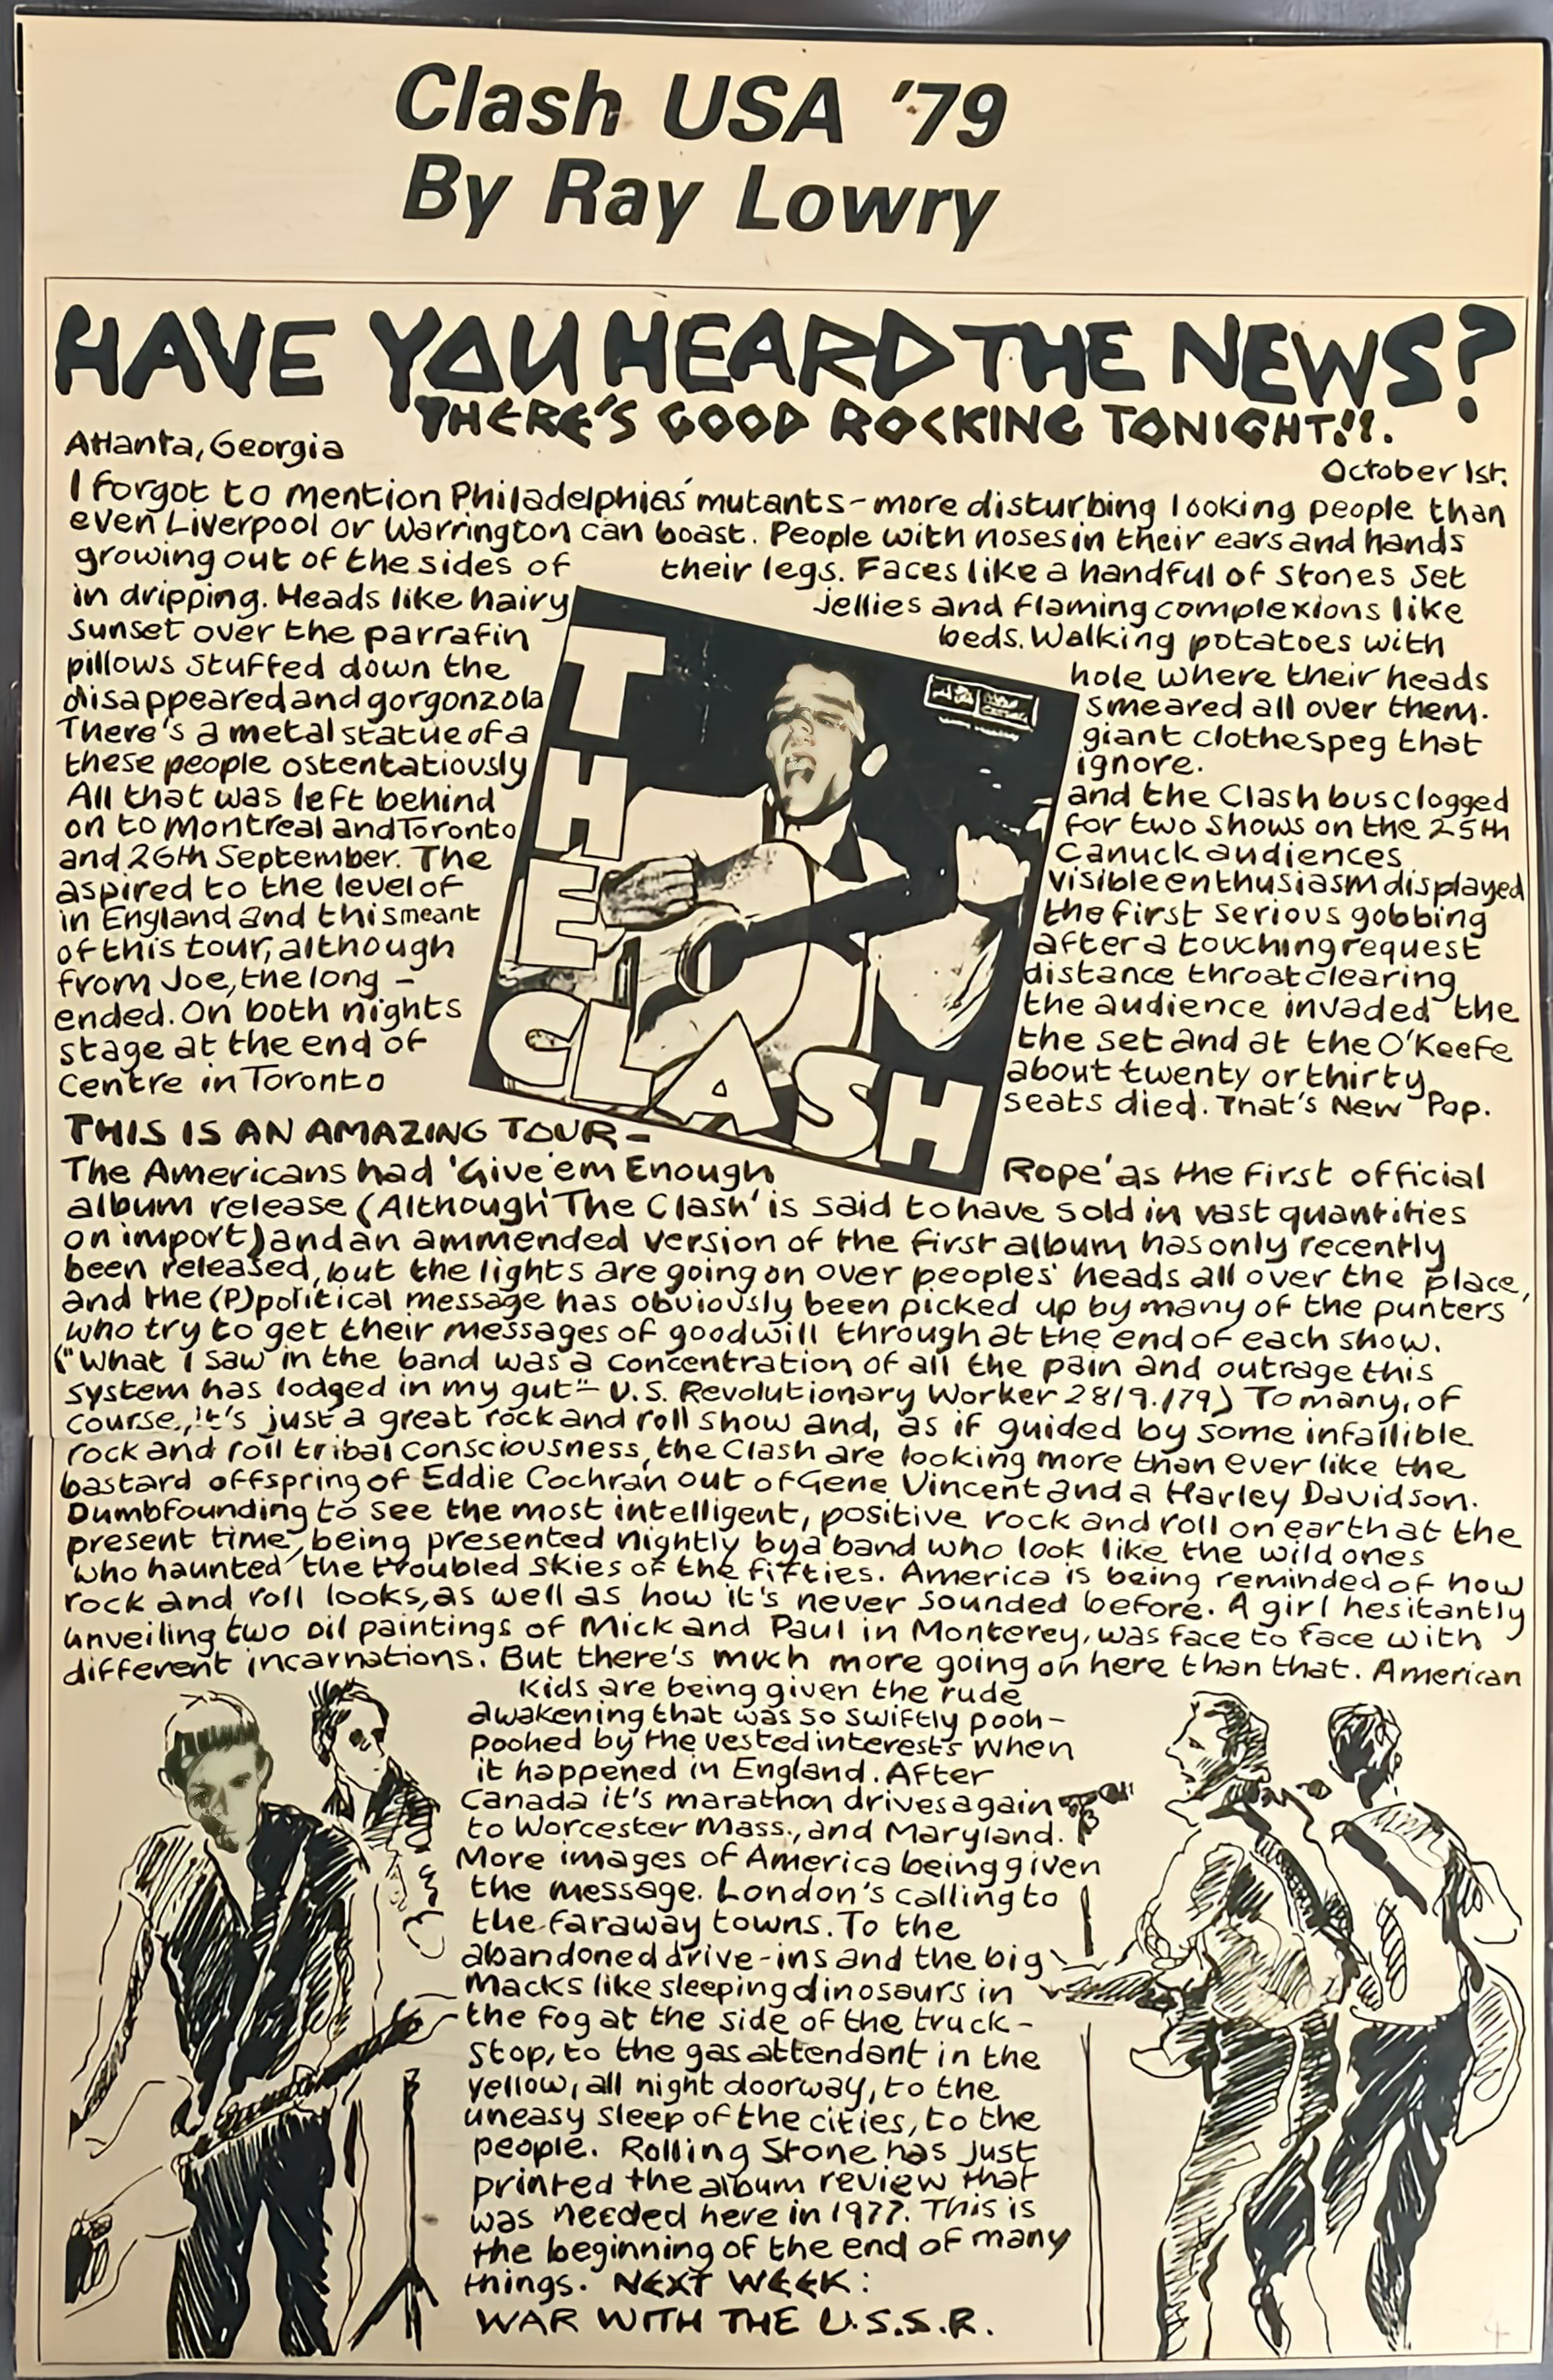 Clash USA '79
By Ray Lowry
HAVE YOU HEARD THE NEWS?
THERE'S GOOD ROCKING TONIGHT!!.
Atlanta, Georgia
October 1st.
I forgot to mention Philadelphias' mutants - more disturbing looking people than
even Liverpool or Warrington can boast. People with noses in their ears and hands
growing out of the sides of their legs. Faces like a handful of stones set
in dripping. Heads like hairy jellies and flaming complexions like
sunset over the parrafin beds. Walking potatoes with
pillows stuffed down the hole where their heads
disappeared and gorgonzola smeared all over them.
There's a metal statue of a giant clothespeg that
these people ostentatiously ignore.
All that was left behind and the Clash bus clogged
on to Montreal and Toronto for two shows on the 25th
and 26th September. The Canuck audiences
aspired to the level of visible enthusiasm displayed
in England and this meant the first serious gobbing
of this tour, although after a touching request
from Joe, the long - distance throat clearing
ended. On both nights the audience invaded the
stage at the end of the set and at the O'Keefe
Centre in Toronto about twenty or thirty
seats died. That's New Pop.
THE
CLASH
THIS IS AN AMAZING TOUR -
The Americans had 'Give 'em Enough Rope' as the first official
album release (Although 'The Clash' is said to have sold in vast quantities
on import) and an ammended version of the first album has only recently
been released, but the lights are going on over peoples' heads all over the place,
and the (P)political message has obviously been picked up by many of the punters
who try to get their messages of goodwill through at the end of each show.
("What I saw in the band was a concentration of all the pain and outrage this
system has lodged in my gut" - U.S. Revolutionary Worker 28/9/79) To many, of
course, it's just a great rock and roll show and, as if guided by some infallible
rock and roll tribal consciousness, the Clash are looking more than ever like the
bastard offspring of Eddie Cochran out of Gene Vincent and a Harley Davidson.
Dumbfounding to see the most intelligent, positive rock and roll on earth at the
present time, being presented nightly by a band who look like the wild ones
who haunted the troubled skies of the fifties. America is being reminded of how
rock and roll looks, as well as how it's never sounded before. A girl hesitantly
unveiling two oil paintings of Mick and Paul in Monterey, was face to face with
different incarnations. But there's much more going on here than that. American
kids are being given the rude
awakening that was so swiftly pooh-
poohed by the vested interests when
it happened in England. After
Canada it's marathon drives again
to Worcester Mass., and Maryland.
More images of America being given
the message. London's calling to
the faraway towns. To the
abandoned drive-ins and the big
Macks like sleeping dinosaurs in
the fog at the side of the truck-
stop, to the gas attendant in the
yellow, all night doorway, to the
uneasy sleep of the cities, to the
people. Rolling Stone has just
printed the album review that
was needed here in 1977. This is
the beginning of the end of many
things. NEXT WEEK:
WAR WITH THE U.S.S.R.